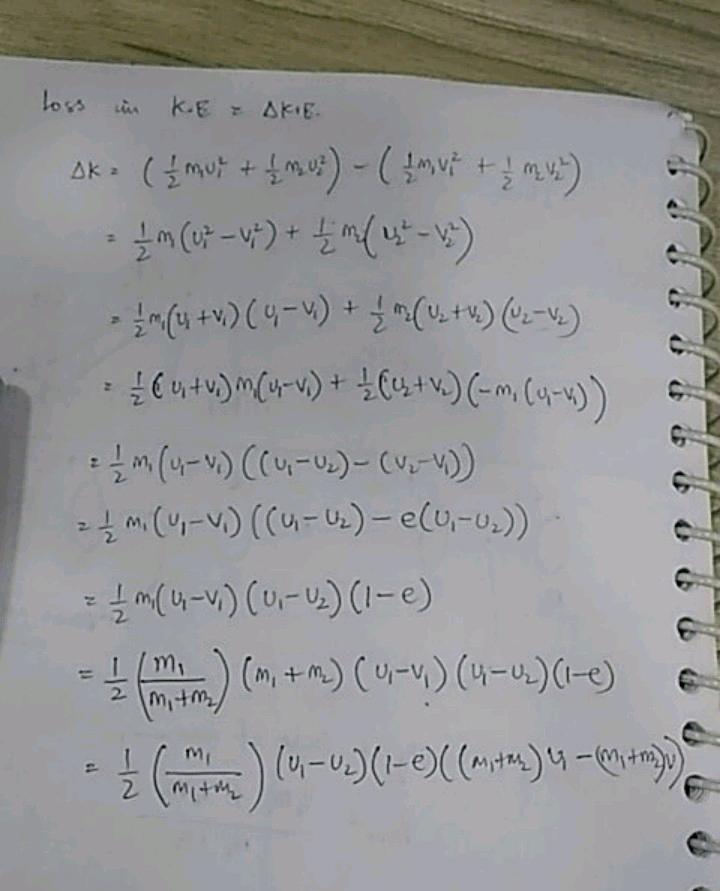 loss in K.E = ΔK.E.
ΔK = (½ m₁u₁² + ½ m₂u₂²) − (½ m₁v₁² + ½ m₂v₂²)
= ½ m₁(u₁² − v₁²) + ½ m₂(u₂² − v₂²)
= ½ m₁(u₁ + v₁)(u₁ − v₁) + ½ m₂(u₂ + v₂)(u₂ − v₂)
= ½ (u₁ + v₁) m₁(u₁ − v₁) + ½ (u₂ + v₂)(−m₁(u₁ − v₁))
= ½ m₁(u₁ − v₁)((u₁ − u₂) − (v₂ − v₁))
= ½ m₁(u₁ − v₁)((u₁ − u₂) − e(u₁ − u₂))
= ½ m₁(u₁ − v₁)(u₁ − u₂)(1 − e)
= ½ (m₁/(m₁ + m₂))(m₁ + m₂)(u₁ − v₁)(u₁ − u₂)(1 − e)
= ½ (m₁/(m₁ + m₂))(u₁ − u₂)(1 − e)((m₁ + m₂)u₁ − (m₁ + m₂)v)